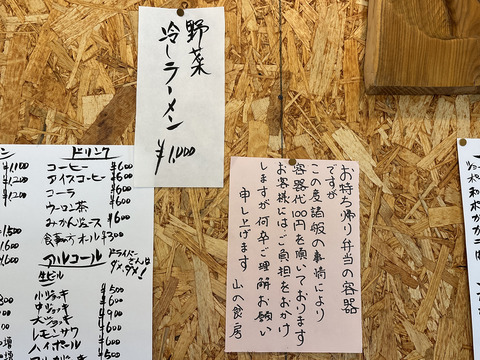 野菜
冷しラーメン
¥1,000
ドリンク
コーヒー ¥600
アイスコーヒー ¥600
コーラ ¥600
ウーロン茶 ¥600
みかんジュース ¥600
食事の方オール¥300
アルコール
ドライバーさんは
ダメ、ダメ!
生ビール
小ジョッキ ¥500
中ジョッキ ¥600
大ジョッキ ¥900
レモンサワー
ハイボール
¥1,100
¥1,200
お持ち帰り弁当の容器
ですが
この度諸般の事情により
容器代100円を頂いております
お客様にはご負担をおかけ
しますが何卒ご理解お願い
申し上げます
山の食房